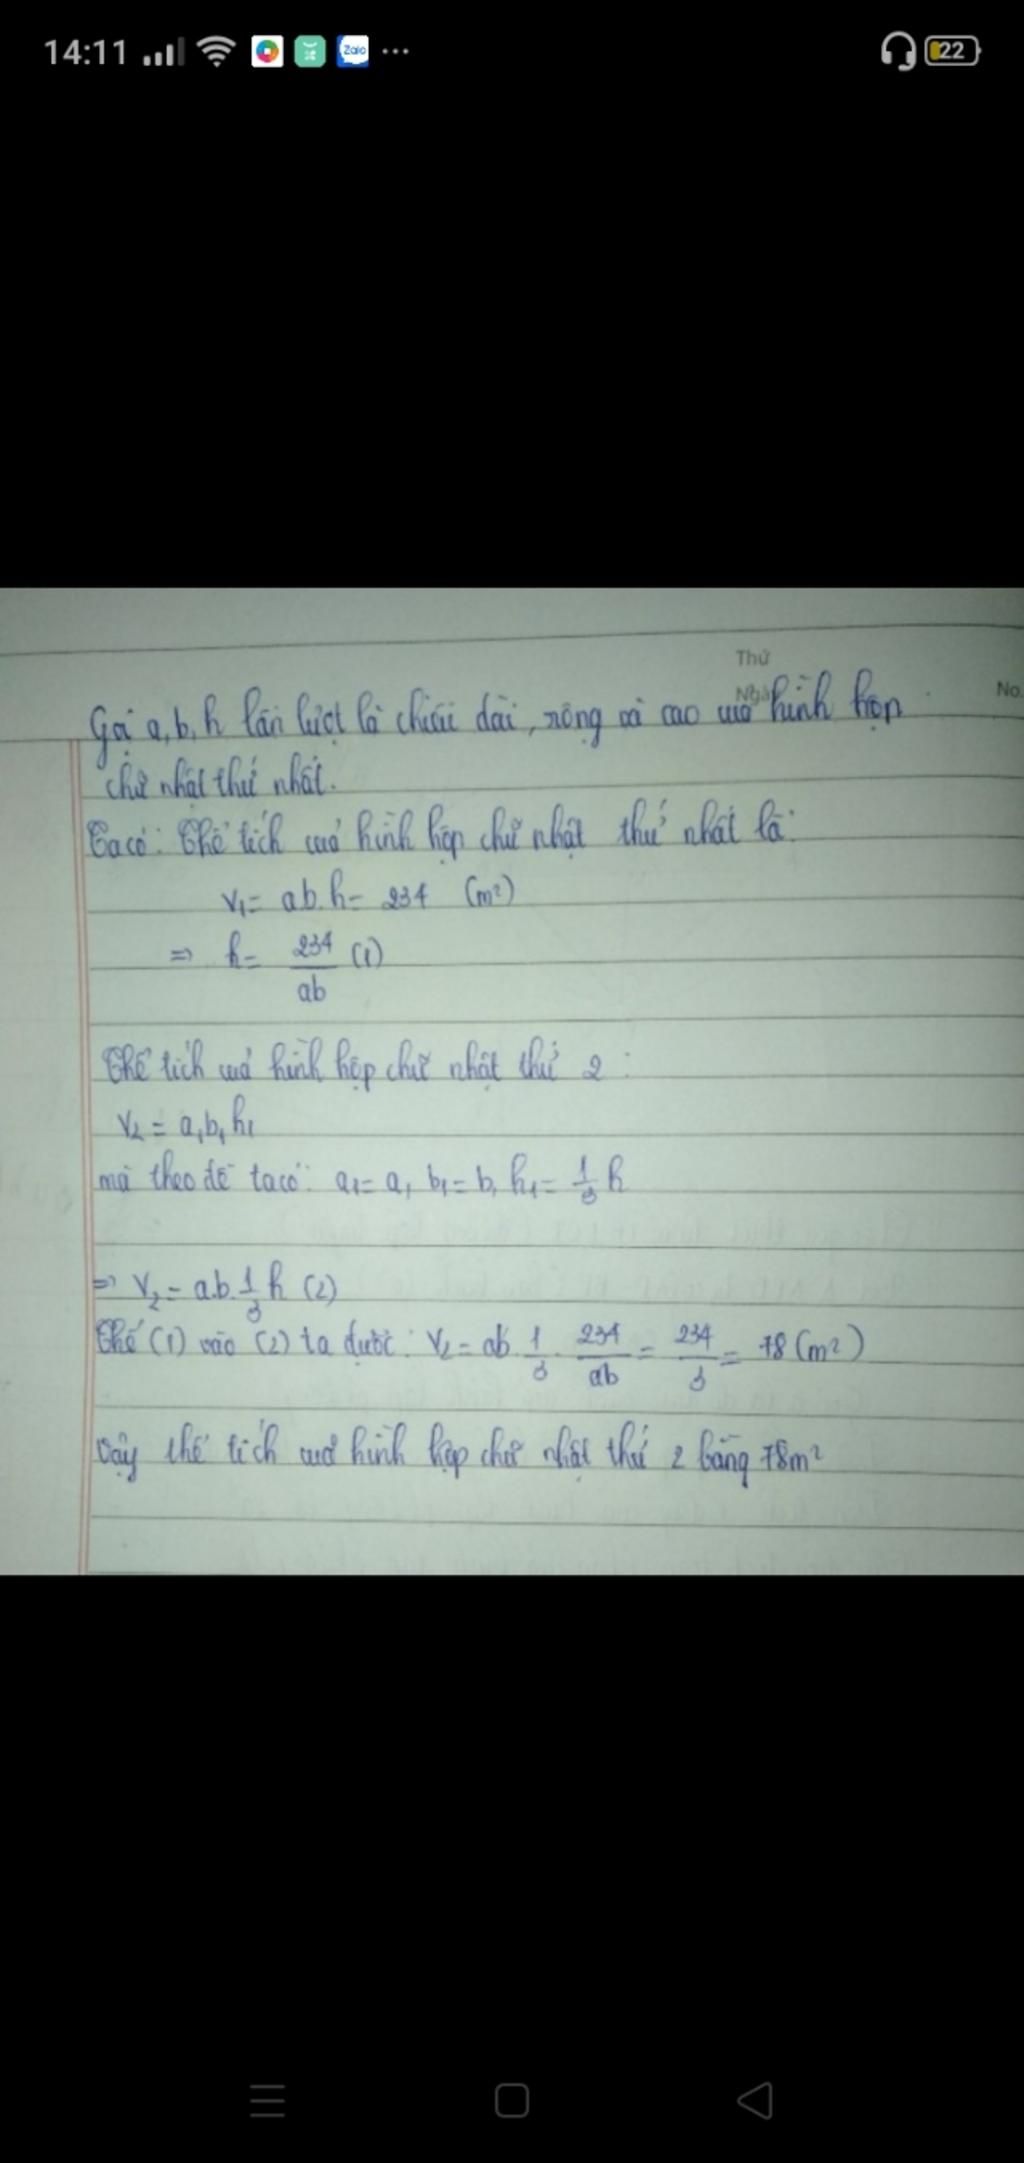 14:11 Zalo ... 22
Thứ
Ngà
No.
Gọi a, b, h lần lượt là chiều dài, rộng và cao của hình hộp
chữ nhật thứ nhất.
Ta có: Thể tích của hình hộp chữ nhật thứ nhất là:
V₁ = ab.h = 234 (m²)
⇒ h = 234/ab (1)
Thể tích của hình hộp chữ nhật thứ 2 :
V₂ = a₁b₁h₁
mà theo đề ta có: a₁ = a, b₁ = b, h₁ = 1/3 h
⇒ V₂ = a.b. 1/3 h (2)
Thế (1) vào (2) ta được: V₂ = ab. 1/3 . 234/ab = 234/3 = 78 (m²)
Vậy thể tích của hình hộp chữ nhật thứ 2 bằng 78m²